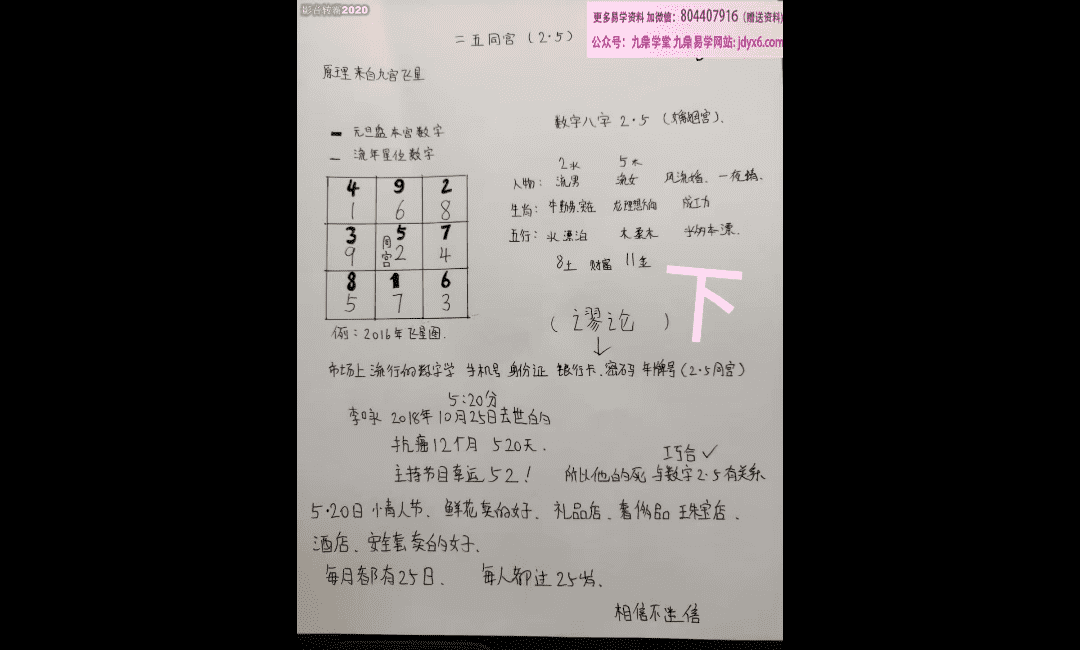 影音转霸2020
更多易学资料 加微信：804407916（赠送资料）
公众号：九鼎学堂 九鼎易学网站: jdyx6.com
二五同宫（2·5）
原理来自九宫飞星
元旦盘本宫数字
流年星位数字
4 9 2
1 6 8
3 5 7
9 同宫 2 4
8 1 6
5 7 3
例：2016年飞星图.
数字八字 2·5（婚姻宫）.
2水 5木
人物：流男 流女 风流婚、一夜婚.
生肖：牛勤劳.实在 龙理想倾向 成功力
五行：水漂泊 木柔木 水纳木漂.
8土 财富 11金
下
（之谬论）
市场上流行的数字学 手机号 身份证 银行卡.密码 车牌号（2·5同宫）
5:20分
李咏 2018年10月25日去世的
抗癌12个月 520天.
巧合✓
主持节目幸运52！ 所以他的死与数字2·5有关系
5·20日 小情人节、鲜花卖的好、礼品店、奢侈品 珠宝店、
酒店、安全套卖的好.
每月都有25日、 每人都过25岁、
相信不迷信